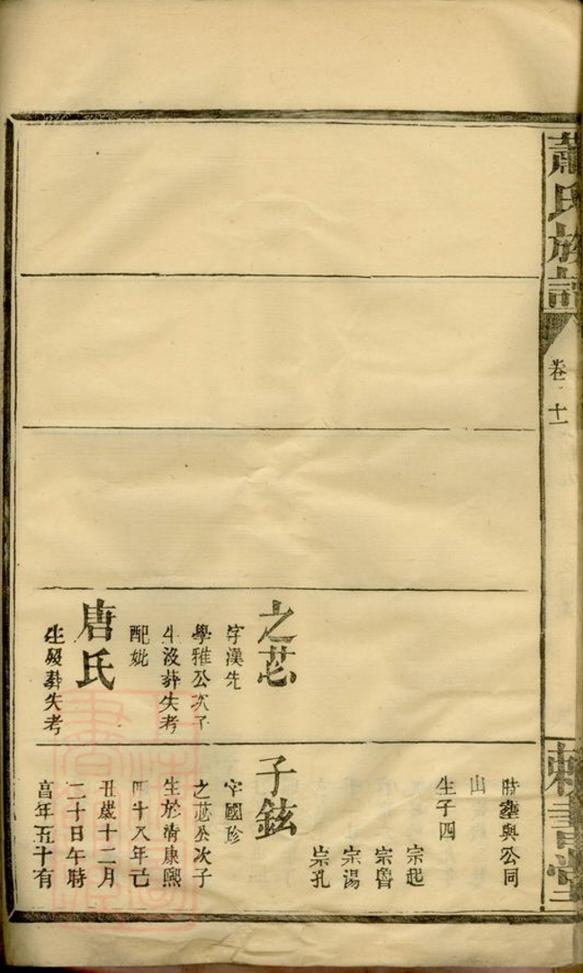 蕭氏族譜
卷十一
敕書堂
之芯
字漢先
學雅公次子
生沒葬失考
配妣
唐氏
生歿葬失考
時塟與公同
山
生子四
宗起
宗魯
宗湯
宗孔
子鉉
字國珍
之芯公次子
生於清康熙
四十八年己
丑歲十二月
二十日午時
亯年五十有